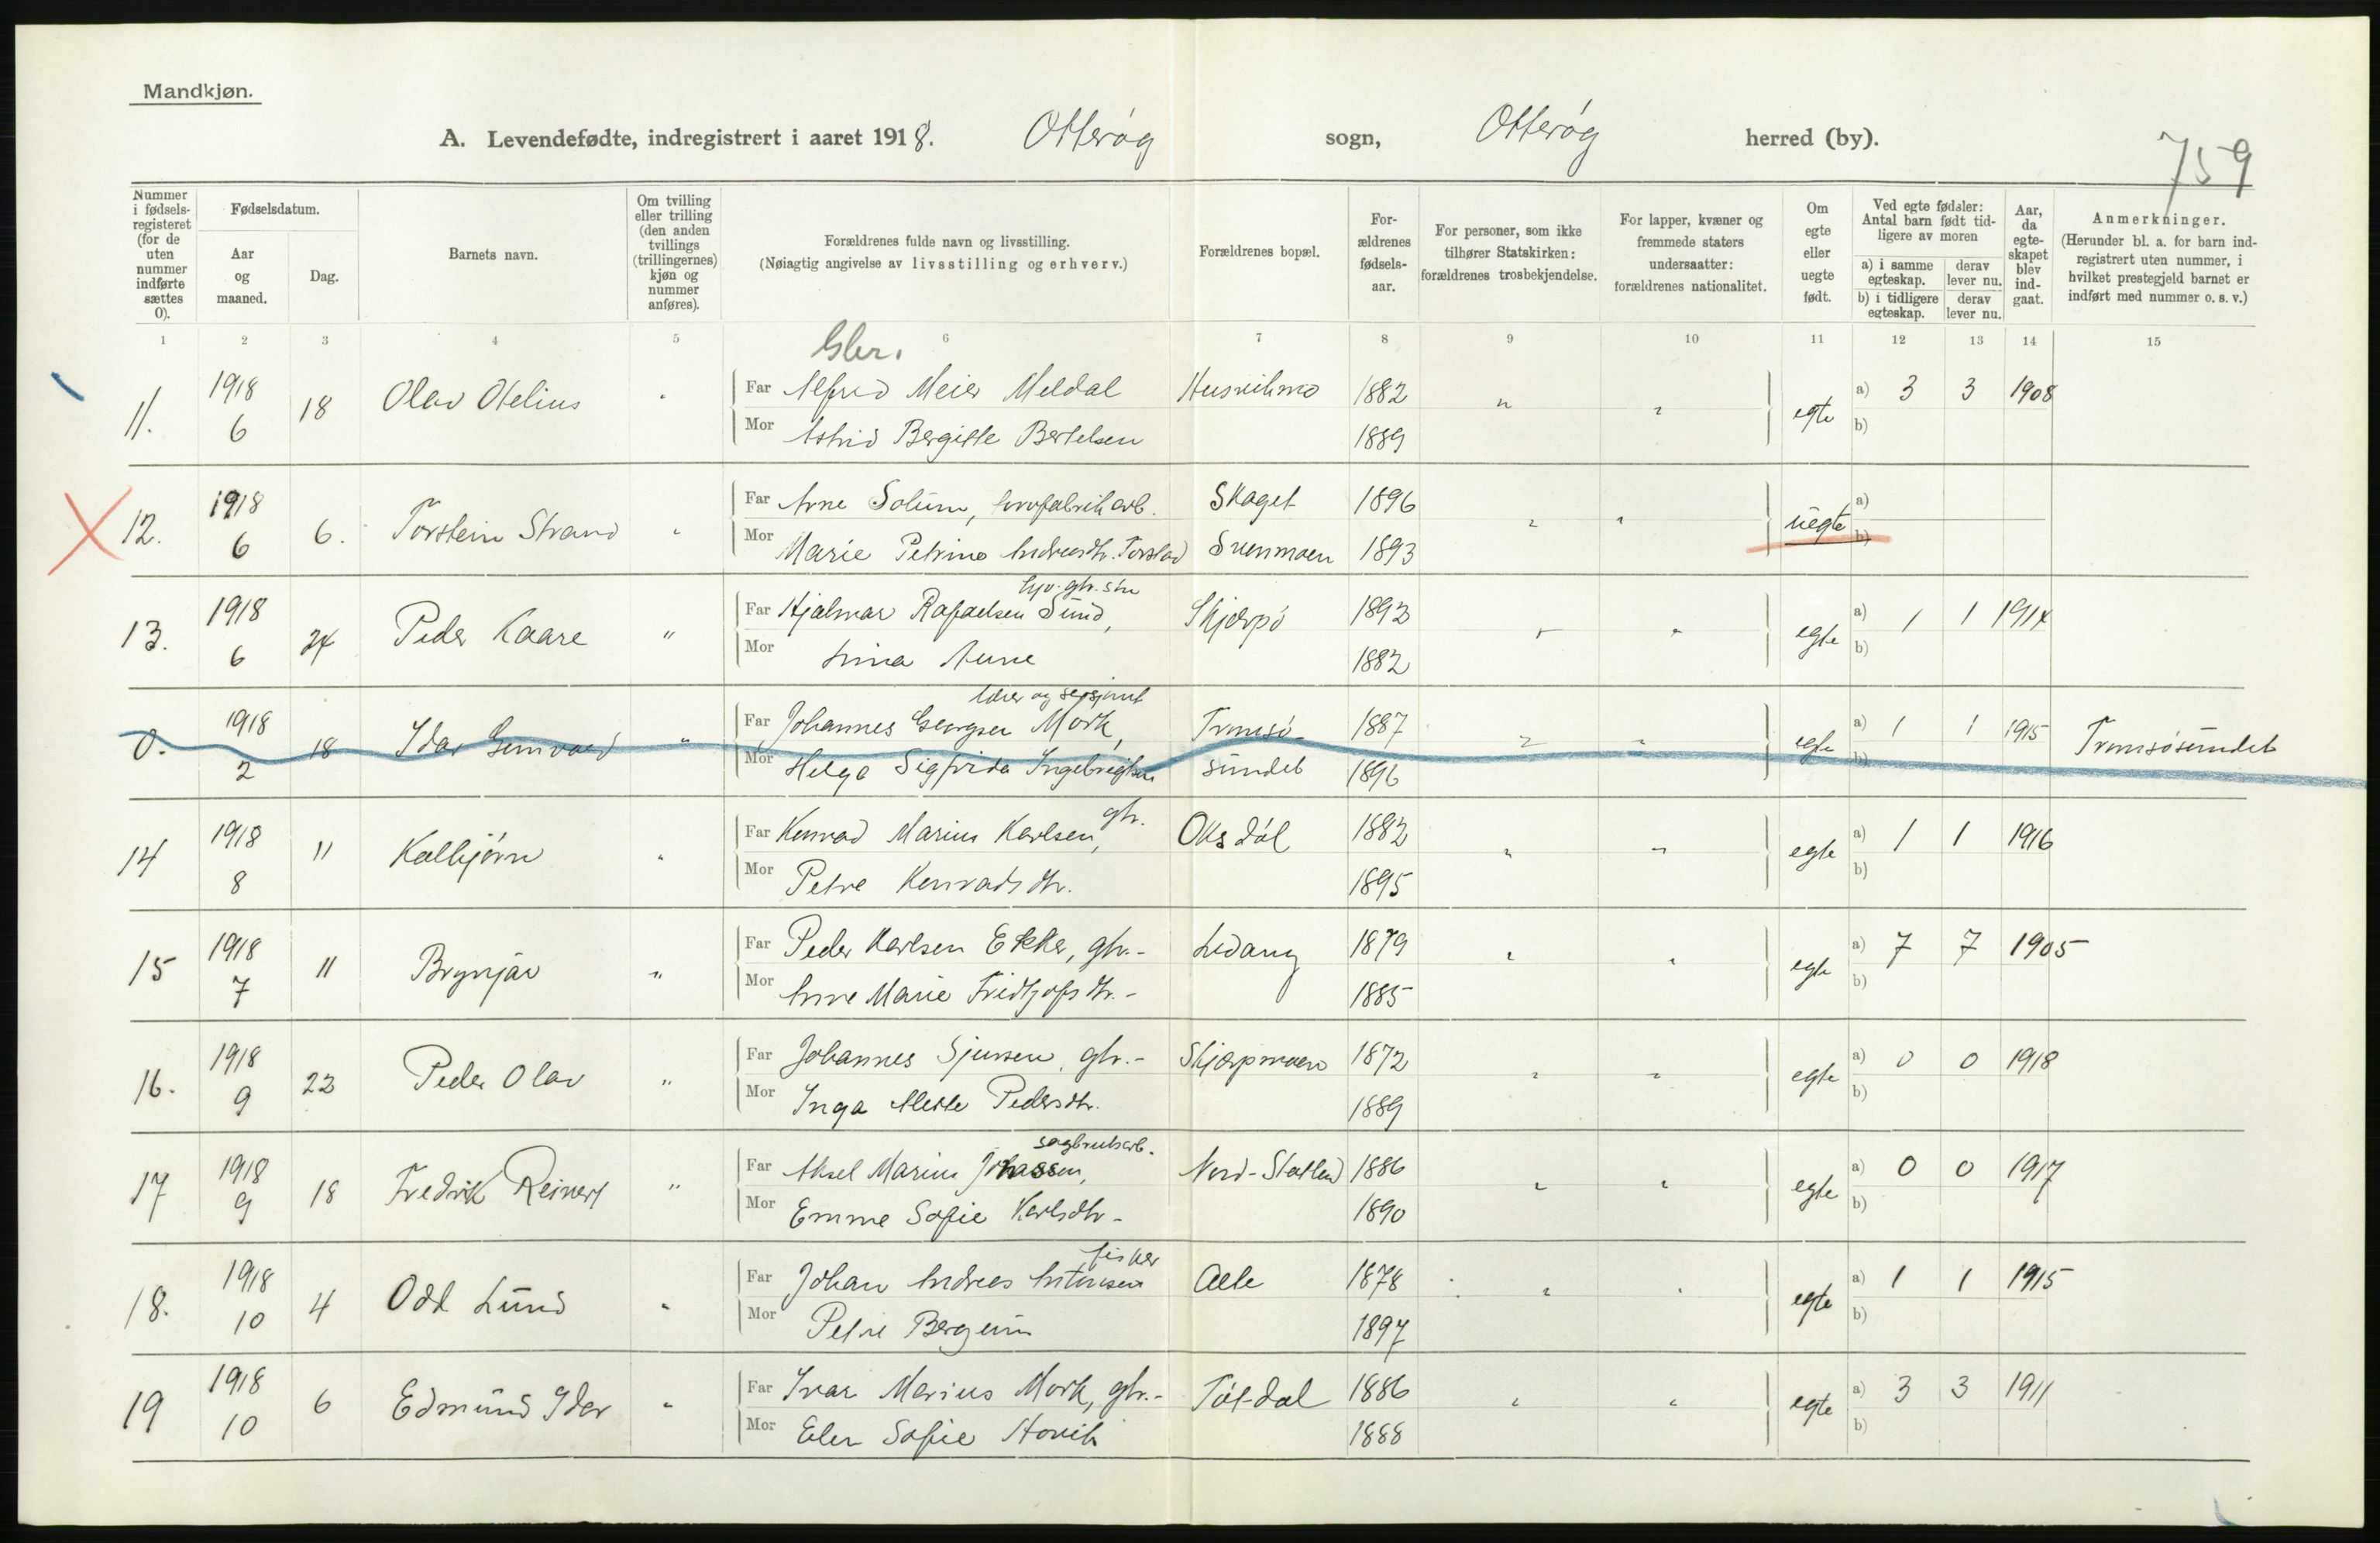 Mandkjøn.
A. Levendefødte, indregistrert i aaret 1918. Otterøy sogn, Otterøy herred (by).
759
Nummer i fødsels-registeret (for de uten nummer indførte sættes 0).
Fødselsdatum.
Aar og maaned.
Dag.
Barnets navn.
Om tvilling eller trilling (den anden tvillings (trillingernes) kjøn og nummer anføres).
Forældrenes fulde navn og livsstilling.
(Nøiagtig angivelse av livsstilling og erhverv.)
Forældrenes bopæl.
For-ældrenes fødsels-aar.
For personer, som ikke tilhører Statskirken: forældrenes trosbekjendelse.
For lapper, kvæner og fremmede staters undersaatter: forældrenes nationalitet.
Om egte eller uegte født.
Ved egte fødsler: Antal barn født tid-ligere av moren
a) i samme egteskap. derav lever nu.
b) i tidligere egteskap. derav lever nu.
Aar, da egte-skapet blev ind-gaat.
Anmerkninger.
(Herunder bl. a. for barn ind-registrert uten nummer, i hvilket prestegjeld barnet er indført med nummer o. s. v.)
1 2 3 4 5 6 7 8 9 10 11 12 13 14 15
11. 1918 6 18 Olav Otelius " Far Alfred Meier Meldal 1882 " " egte a) 3 3 1908
Mor Astrid Bergitte Bertelsen 1889 b)
12. 1918 6 6. Torstein Strand " Far Arne Solum, Skaget 1896 " " uegte a)
Mor Marie Petrine Andreasdtr. Torstad Svenmoen 1893 b)
13. 1918 6 24 Peder Kaare " gbr. søn
Far Hjalmar Rafaelsen Sund, Skjærpø 1892 " " egte a) 1 1 1914
Mor Lina Aune 1882 b)
0. 1918 2 18 Idar " lærer og
Far Johannes Georgsen Mork, Tromsø- 1887 " " egte a) 1 1 1915 Tromsøsundet
Mor Helga Sigfrida Ingebrigtsen sundet 1896 b)
14 1918 8 11 Kolbjørn " gbr.
Far Konrad Marius Karlsen, Oksdøl 1882 " " egte a) 1 1 1916
Mor Petra Konradsdtr. 1895 b)
15 1918 7 11 Brynjar " Far Peder Karlsen Ekker, gbr.- 1879 " " egte a) 7 7 1905
Mor Anne Marie Fridtjofsdtr.- 1885 b)
16. 1918 9 22 Peder Olav " Far Johannes Sjursen, gbr.- Skjærpmoen 1872 " " egte a) 0 0 1918
Mor Inga Mette Pedersdtr. 1889 b)
17 1918 9 18 Fredrik Reinert " sagbruksarb.
Far Aksel Marius Johassen, Nord-Statland 1886 " " egte a) 0 0 1917
Mor Emma Sofie Karlsdtr- 1890 b)
18. 1918 10 4 Odd Lund " fisker
Far Johan Andreas Antonsen Aele 1878 " " egte a) 1 1 1915
Mor Petra Bergum 1897 b)
19 1918 10 6 Edmund Idar " Far Ivar Marius Mork, gbr.- Tøtdal 1886 " " egte a) 3 3 1911
Mor Elen Sofie Hovik 1888 b)